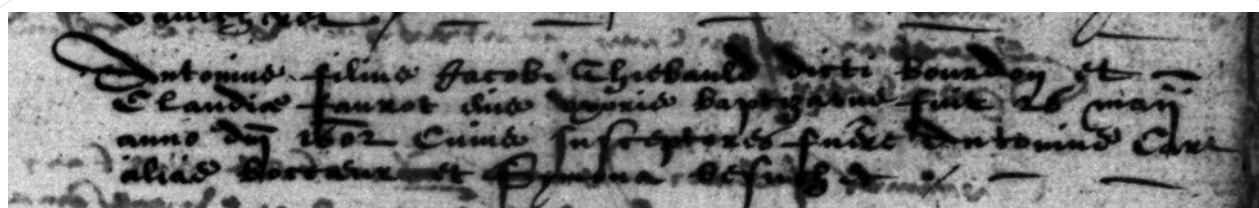 Antonius filius Jacobi Thiebauld dicti Bourdon et
Claudiæ Faurot eius uxoris baptizatus fuit 26 maii
anno dni 1602 Cuius susceptores fuere Antonius
alias et Symona